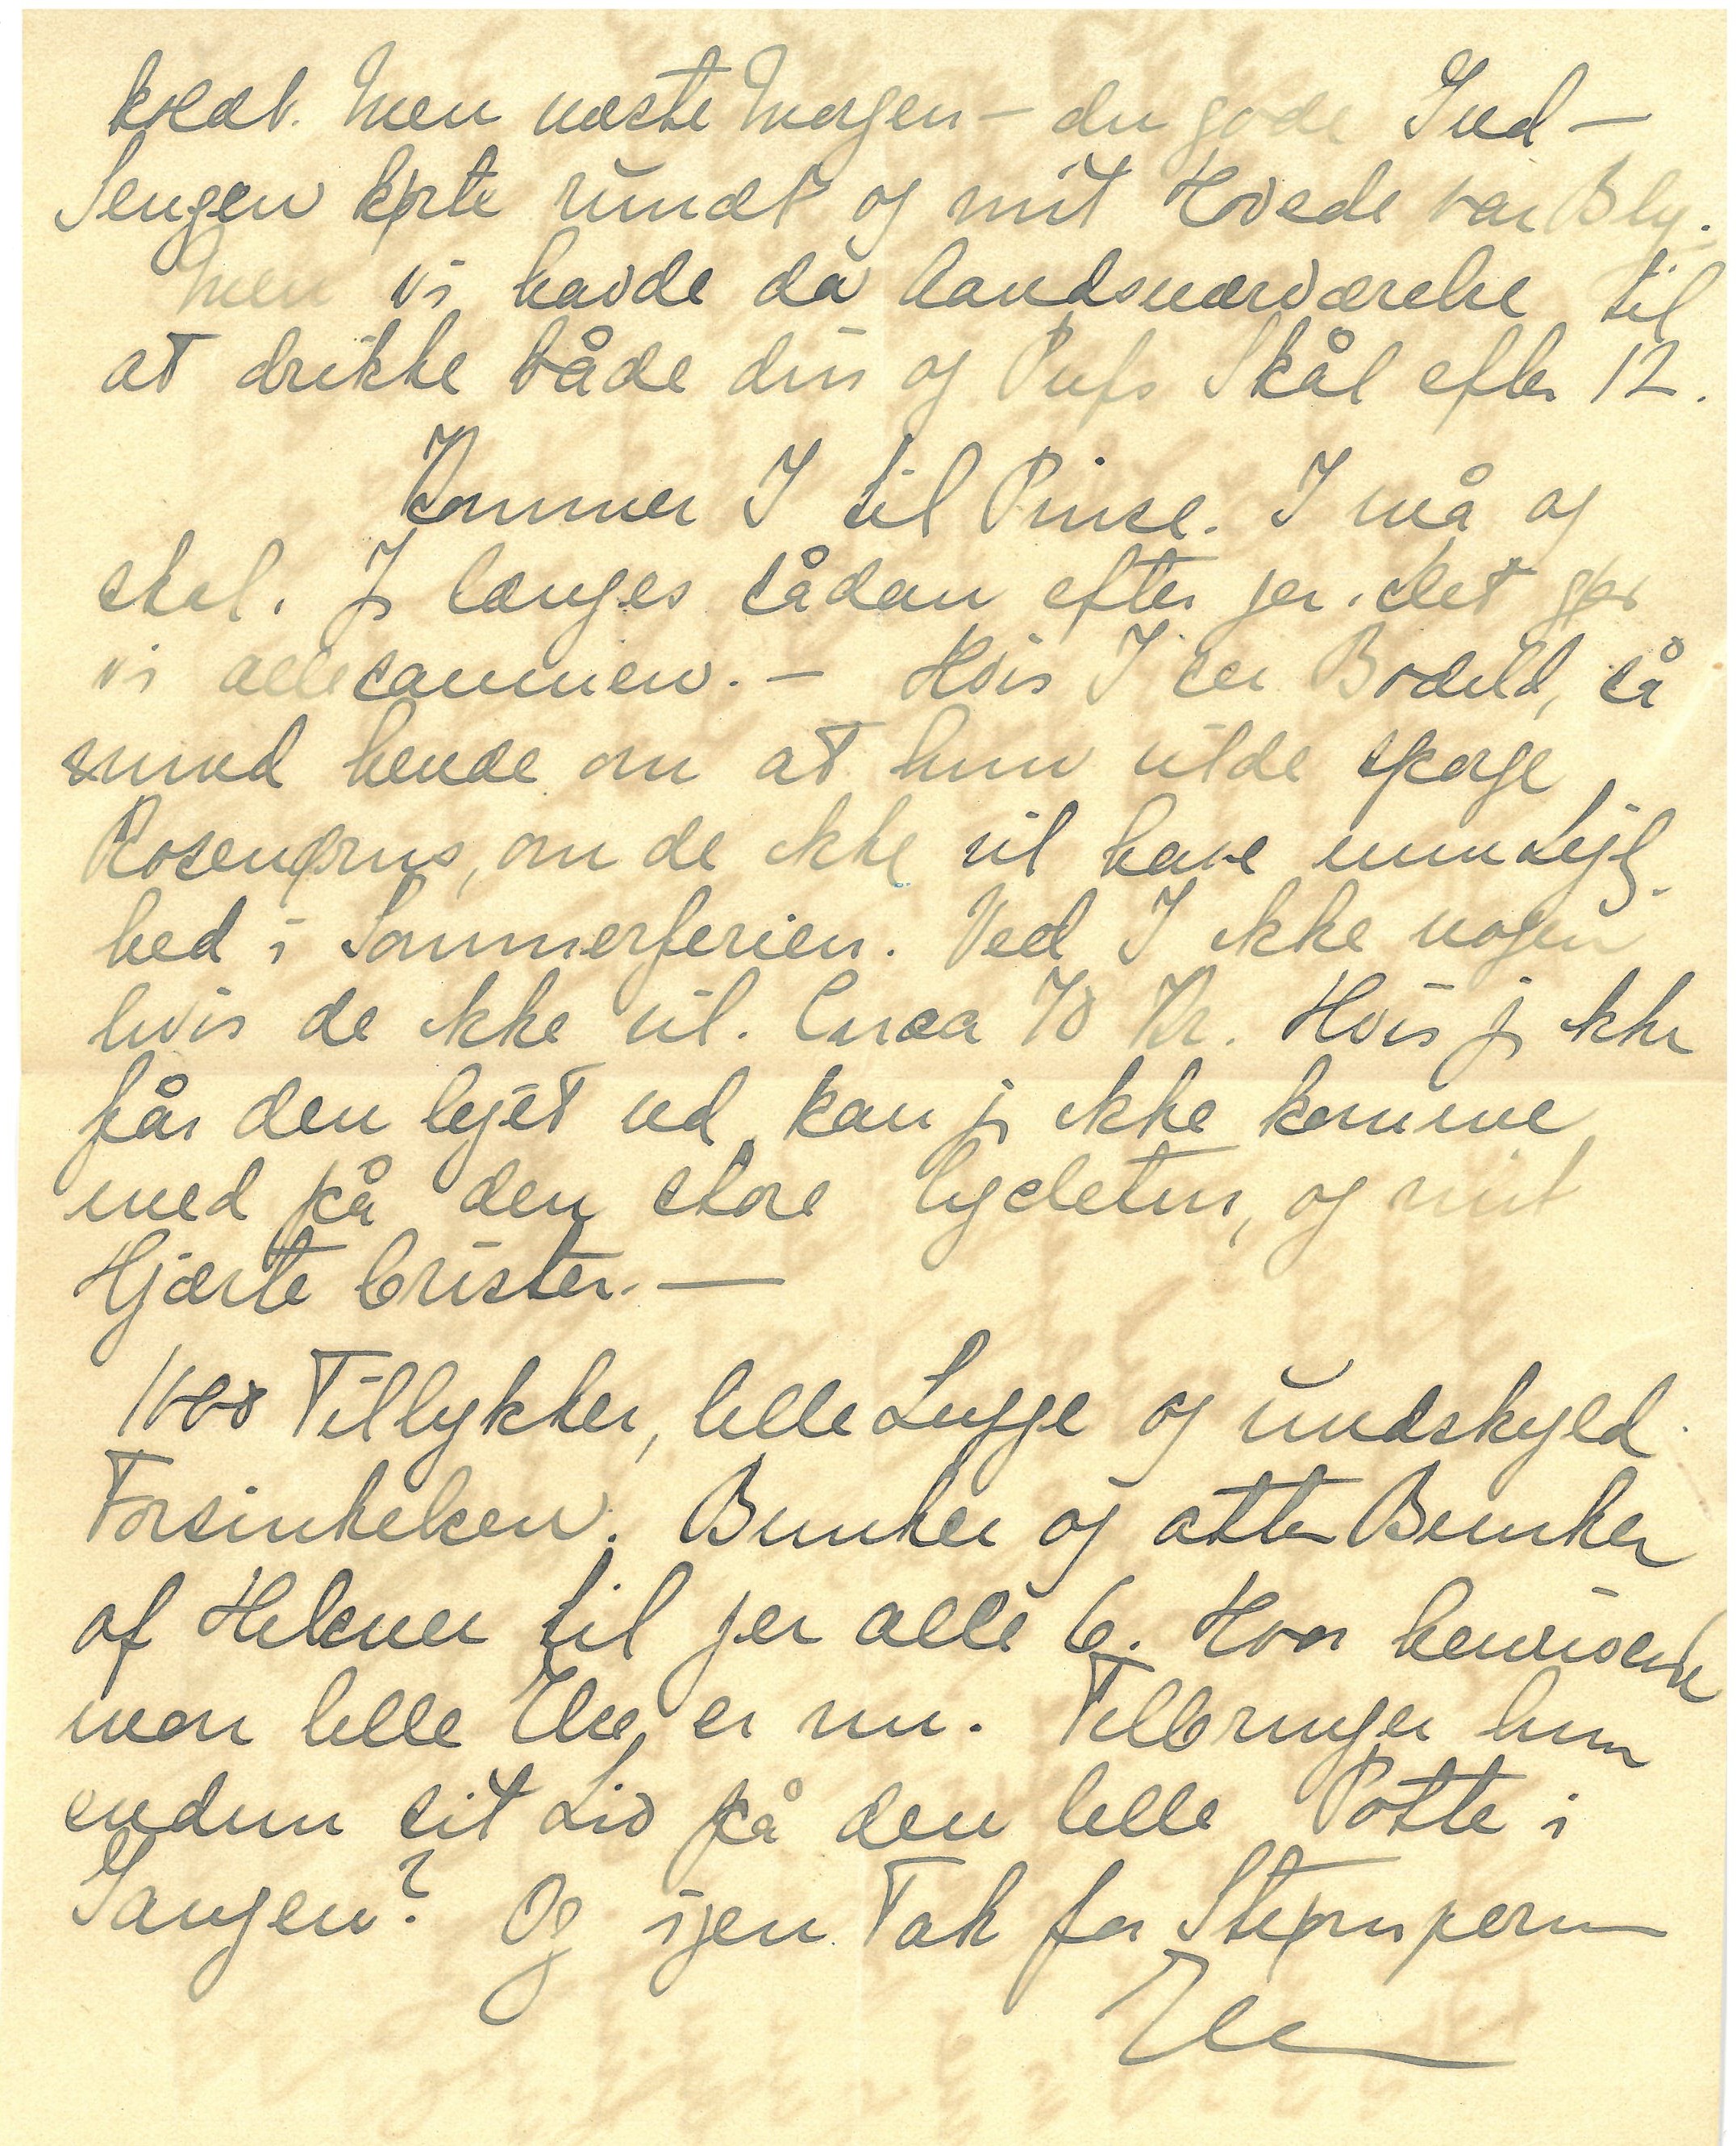 koldt. Men næste Morgen – du gode Gud –
Sengen kørte rundt og mit Hovede var Bly.
Men vi havde da Aandsnærværelse til
at drikke både din og Pufs Skål efter 12.
Kommer I til Pinse. I må og
skal. Jg længes sådan efter jer. det gør
vi allesammen. – Hvis I ser Bodild, så
mind hende om at hun vilde spørge
Rosenørns, om de ikke vil have min Lejlig-
hed i Sommerferien. Ved I ikke nogen
hvis de ikke vil. Circa 70 Kr. Hvis jg ikke
får den lejet ud, kan jg ikke komme
med på den store Cycletur, og mit
Hjærte brister. —
1000 Tillykker, lille Lugge og undskyld
Forsinkelsen. Bunker og atter Bunker
af Hilsner til jer alle 6. Hvor henrivende
mon lille Else er nu. Tilbringer hun
endnu sit Liv på den lille Potte i
Gangen? Og igen Tak for